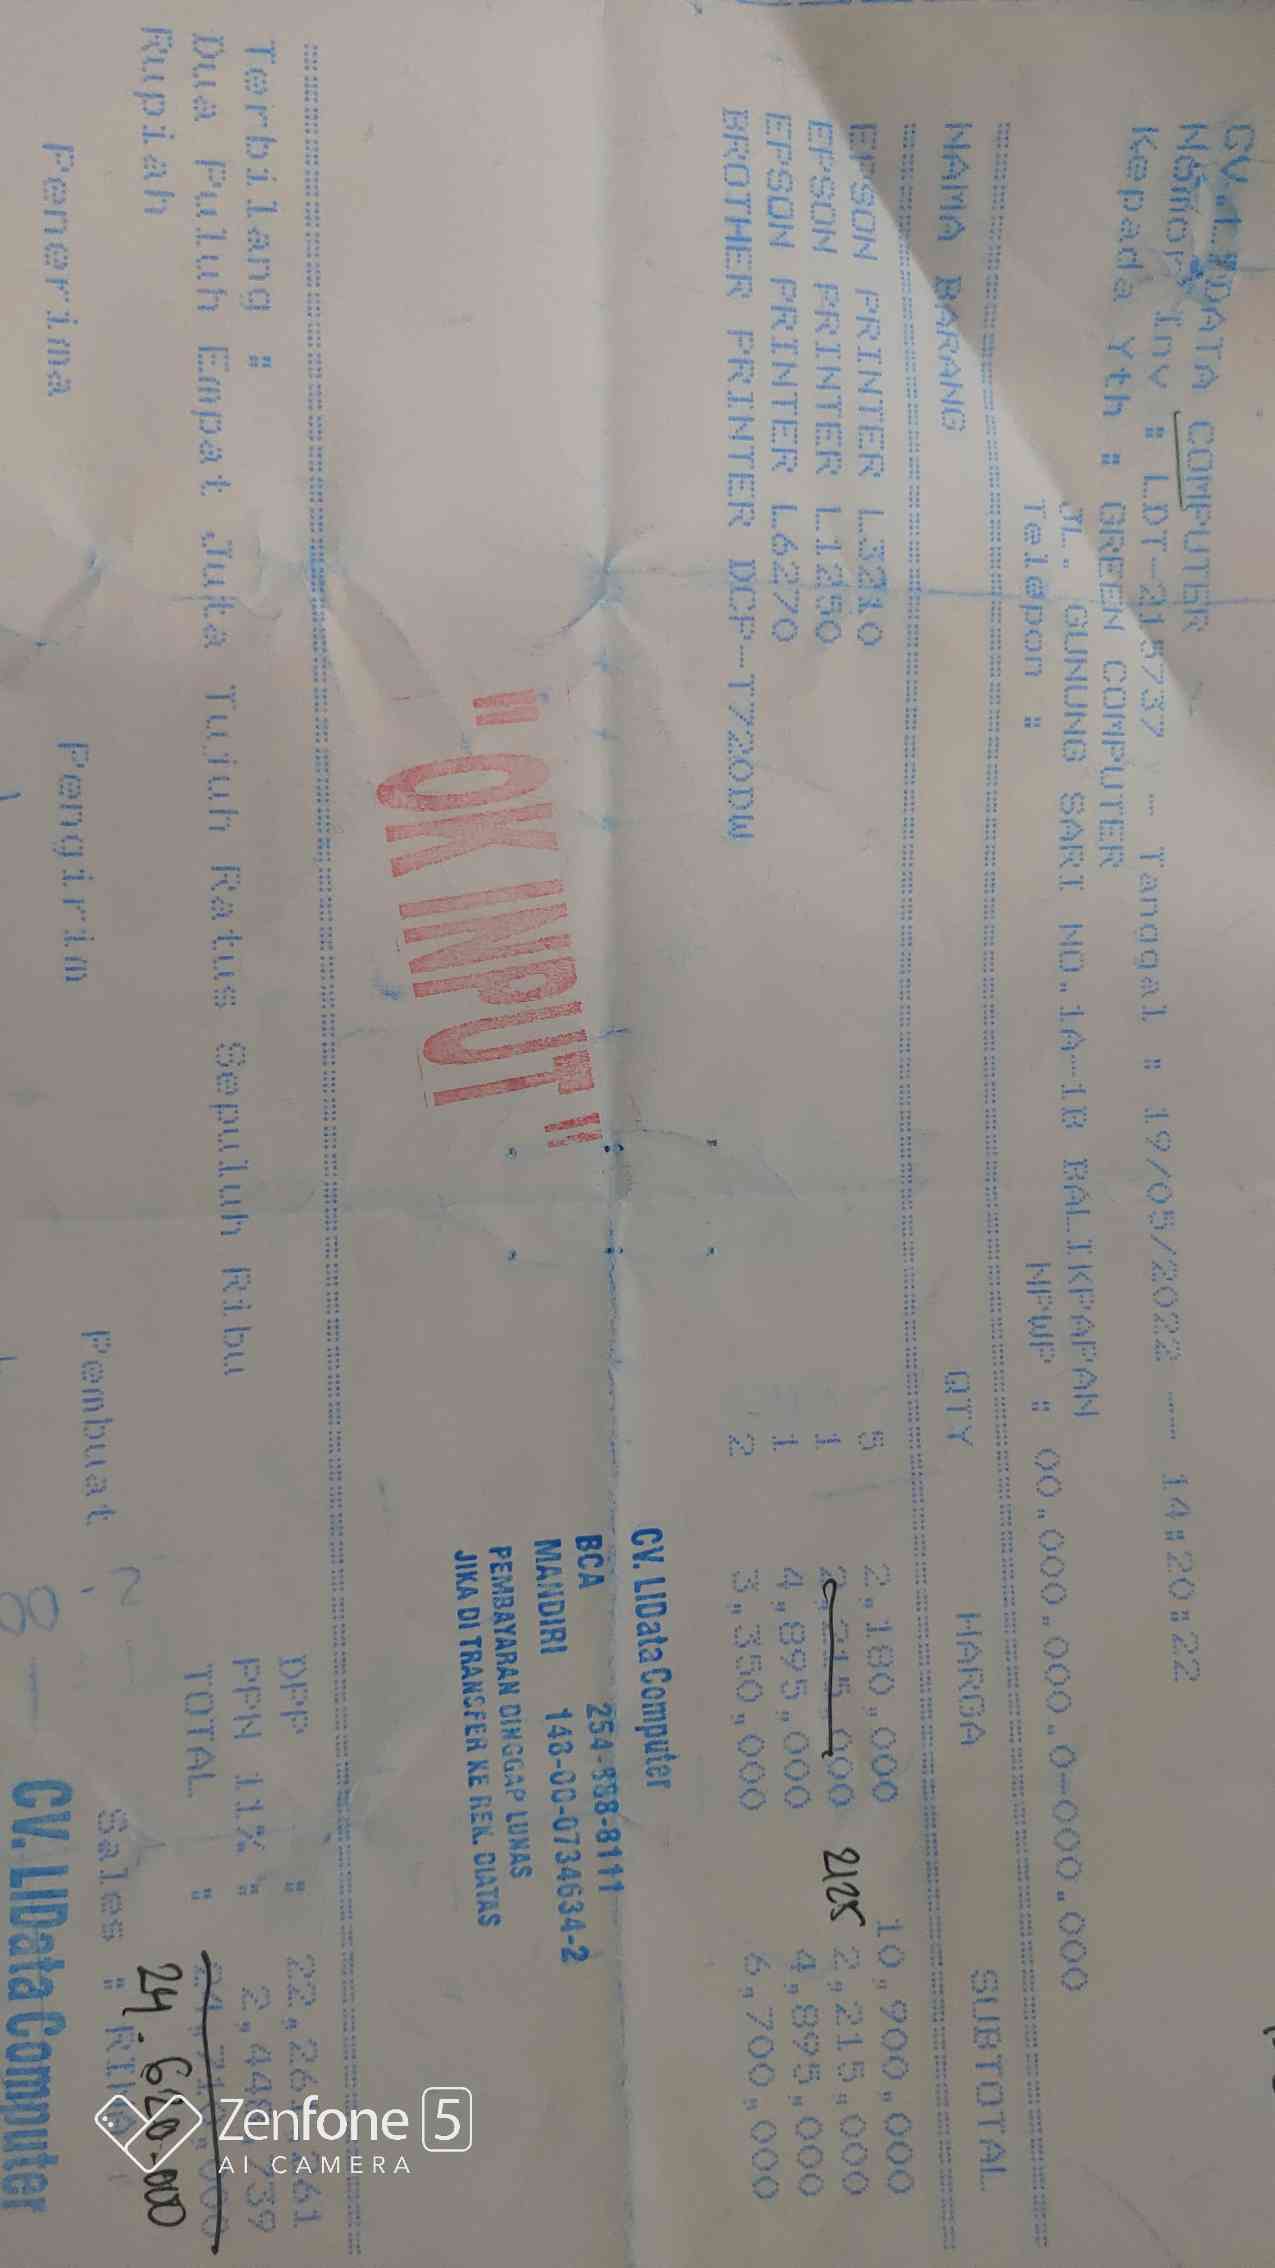 CV. LIDATA COMPUTER
Nomor Inv : LDT-215737 -- Tanggal : 19/05/2022 -- 14:20:22
Kepada Yth : GREEN COMPUTER
JL. GUNUNG SARI NO.1A-1B BALIKPAPAN
Telepon : NPWP : 00.000.000.0-000.000
NAMA BARANG QTY HARGA SUBTOTAL
EPSON PRINTER L3210 5 2,180,000 10,900,000
EPSON PRINTER L1250 1 2,215,000 2125 2,215,000
EPSON PRINTER L6270 1 4,895,000 4,895,000
BROTHER PRINTER DCP-T720DW 2 3,350,000 6,700,000
CV. LIData Computer
BCA 254-898-8111
MANDIRI 148-00-0734634-2
PEMBAYARAN DINGGAP LUNAS
JIKA DI TRANSFER KE REK. DIATAS
" OK INPUT "
Terbilang :
Dua Puluh Empat Juta Tujuh Ratus Sepuluh Ribu
Rupiah
DPP :
PPN 11% :
TOTAL : 24,710,000
24.620.000
Penerima Pengirim Pembuat Sales :
CV. LIData Computer
Zenfone 5
AI CAMERA